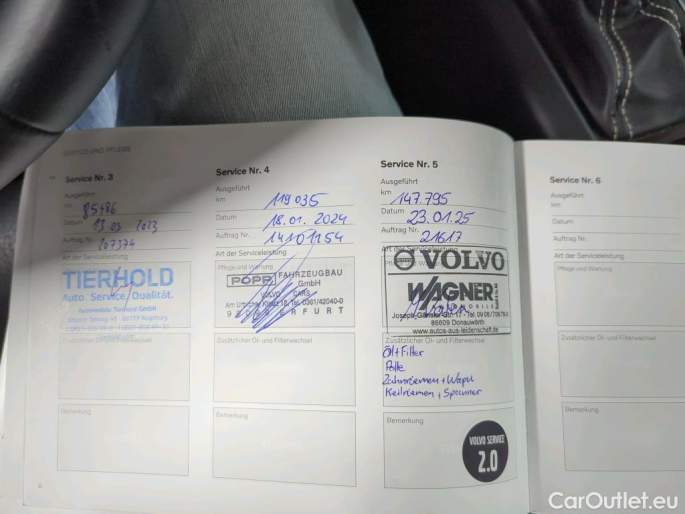 SERVICE UND PFLEGE
Service Nr. 3
Ausgeführt
km
85486
Datum
Auftrag Nr.
207374
Art der Serviceleistung
TIERHOLD
Auto. Service. Qualität.
Automobile Tierhold GmbH
Zusätzlicher Öl- und Filterwechsel
Bemerkung
Service Nr. 4
Ausgeführt
km 119 035
Datum 18.01.2024
Auftrag Nr. 14101154
Art der Serviceleistung
Pflege und Wartung
POPP FAHRZEUGBAU
GmbH
VOLVO CARS
Tel. 0361/42040-0
ERFURT
Zusätzlicher Öl- und Filterwechsel
Bemerkung
Service Nr. 5
Ausgeführt
km 147.795
Datum 23.01.25
Auftrag Nr. 21617
Art der Serviceleistung
VOLVO
WAGNER
AUTOMOBILE
86609 Donauwörth
www.autos-aus-leidenschaft.de
Zusätzlicher Öl- und Filterwechsel
Öl + Filter
Polle
Zahnriemen + Wapu
Keilriemen + Spanner
Bemerkung
VOLVO SERVICE
2.0
Service Nr. 6
Ausgeführt
km
Datum
Auftrag Nr.
Art der Serviceleistung
Pflege und Wartung
Zusätzlicher Öl- und Filterwechsel
Bemerkung
CarOutlet.eu